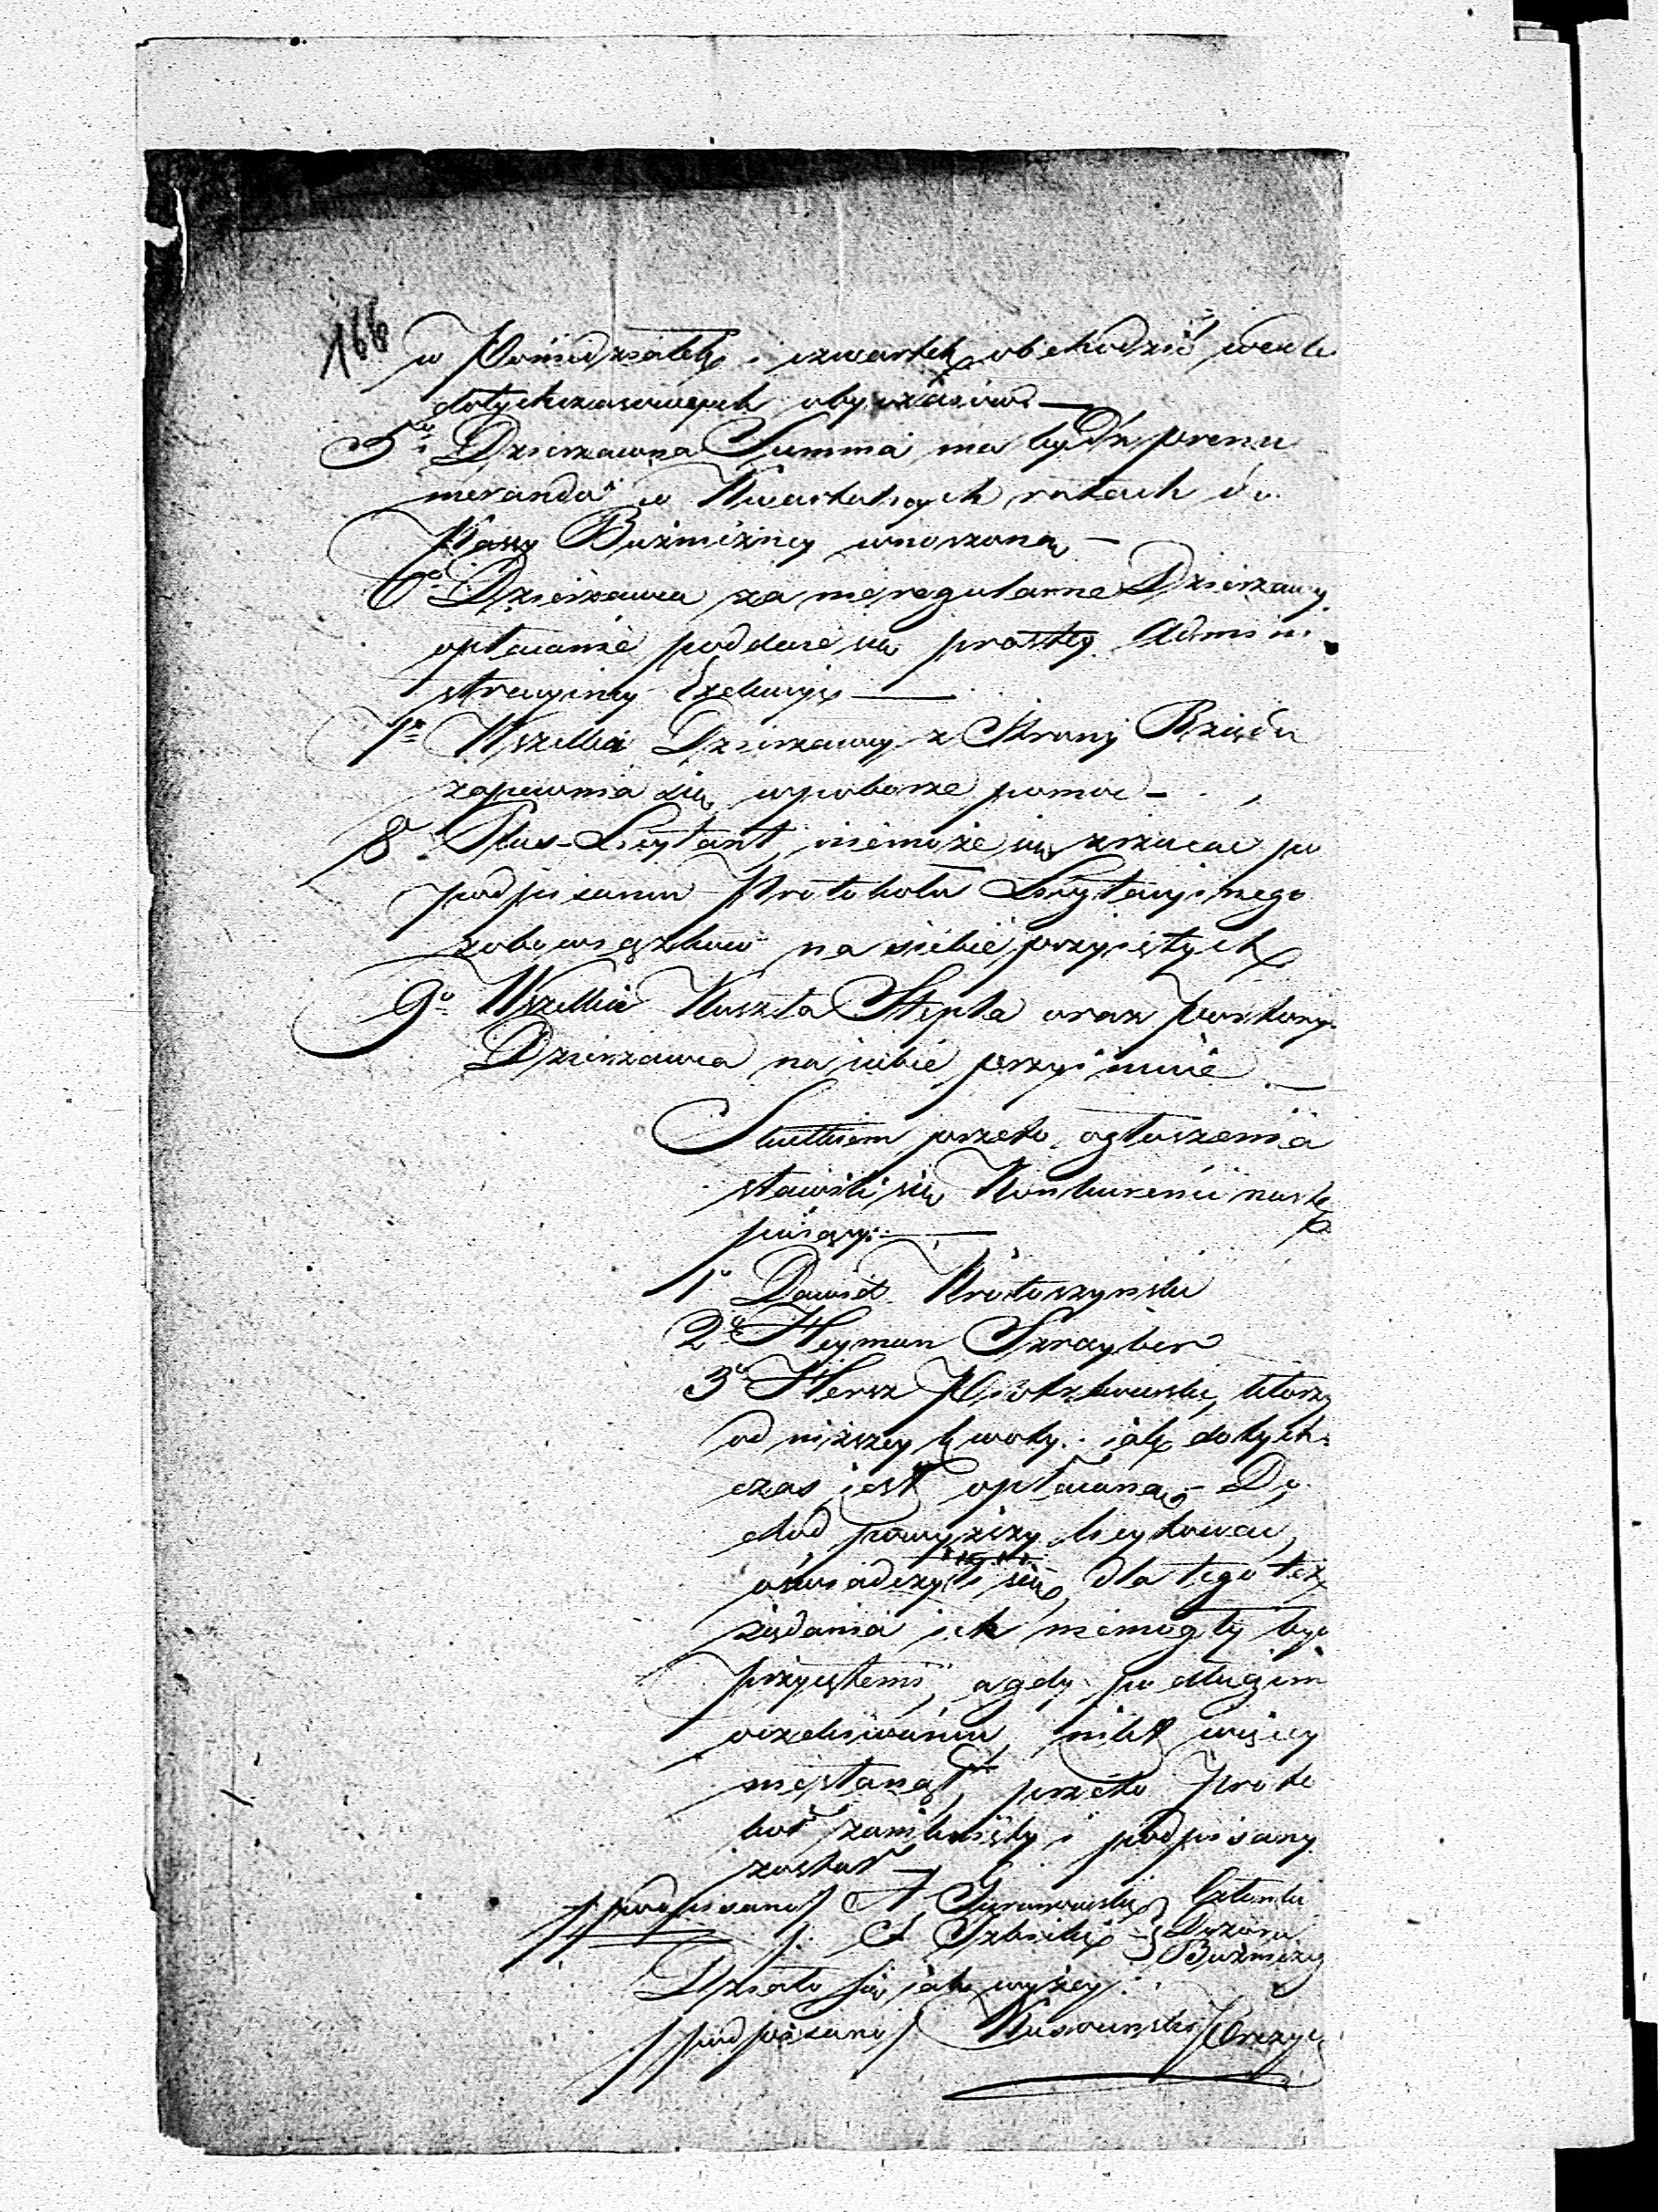 166
w Poniedziałek i czwartek obchodzić wedle
dotychczasowych obyczaiow —
5o Dzierzawna Summa ma bydź prenu
meranda w Kwartalnych ratach do
Kassy Bużniczney wnoszona, —
6o Dzierżawca za nieregularne Dzierzawy
opłacanie poddaie się prostey Admini
stracyiney Exekucyi —
7o Wszelka Dzierzawcy z Strony Rządu
zapewnia się w poborze pomoc —
8o Plus-Licytant niemoże się zrzucać po
podpisaniu Protokołu Licytacyinego
zobowiązkow na siebie przyiętych
9o Wszelkie Koszta Stępla oraz
Dzierzawca na siebie przyimuie. —
Skutkiem przeto ogłoszenia
stawili się Konkurenci nastę
puiący: —
1o Dawid Krotoszynski
2o Heyman Szrayber
3o Hersz Piotrkowski, ktorzy
od niższey kwoty iak dotych
czas iest opłacana, — Do
chod powyższy licytować,
oświadczyli się, dla tego też
żądania ich niemogły być
przyiętemi, a gdy po długim
oczekiwaniu nikt więcey
niestanął, przeto Proto
koł zamknięty i podpisany
został —
/podpisano/ A Członki
J. S. Dozoru
Bużniczeg
Działo się iak wyżey.
/podpisano/